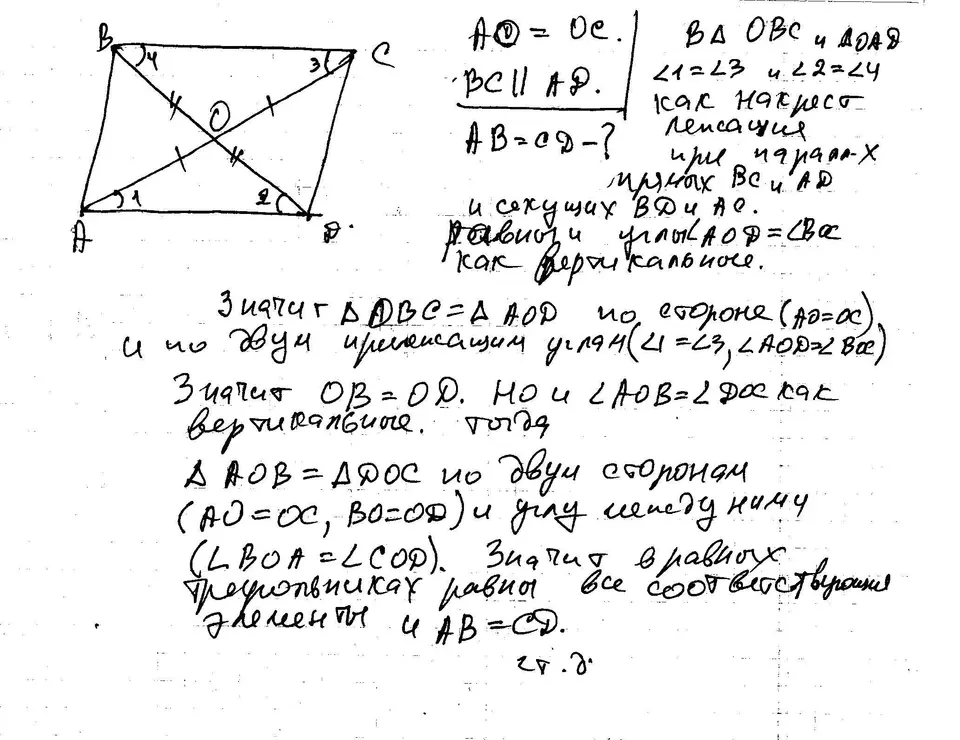 B
4
3
C
O
A
1
2
D.
AO = OC.
BC || AD.
AB = CD - ?
В Δ OBC и ΔOAD
∠1 = ∠3 и ∠2 = ∠4
как накрест
лежащие
при парал-х
прямых BC и AD
и секущих BD и AC.
Равны и углы ∠AOD = ∠BOC
как вертикальные.
Значит Δ OBC = Δ AOD по стороне (AO = OC)
и по двум прилежащим углам (∠1 = ∠3, ∠AOD = ∠BOC)
Значит OB = OD. Но и ∠AOB = ∠DOC как
вертикальные. тогда
Δ AOB = Δ DOC по двум сторонам
(AO = OC, BO = OD) и углу между ними
(∠BOA = ∠COD). Значит в равных
треугольниках равны все соответствующие
элементы и AB = CD.
чт.д.